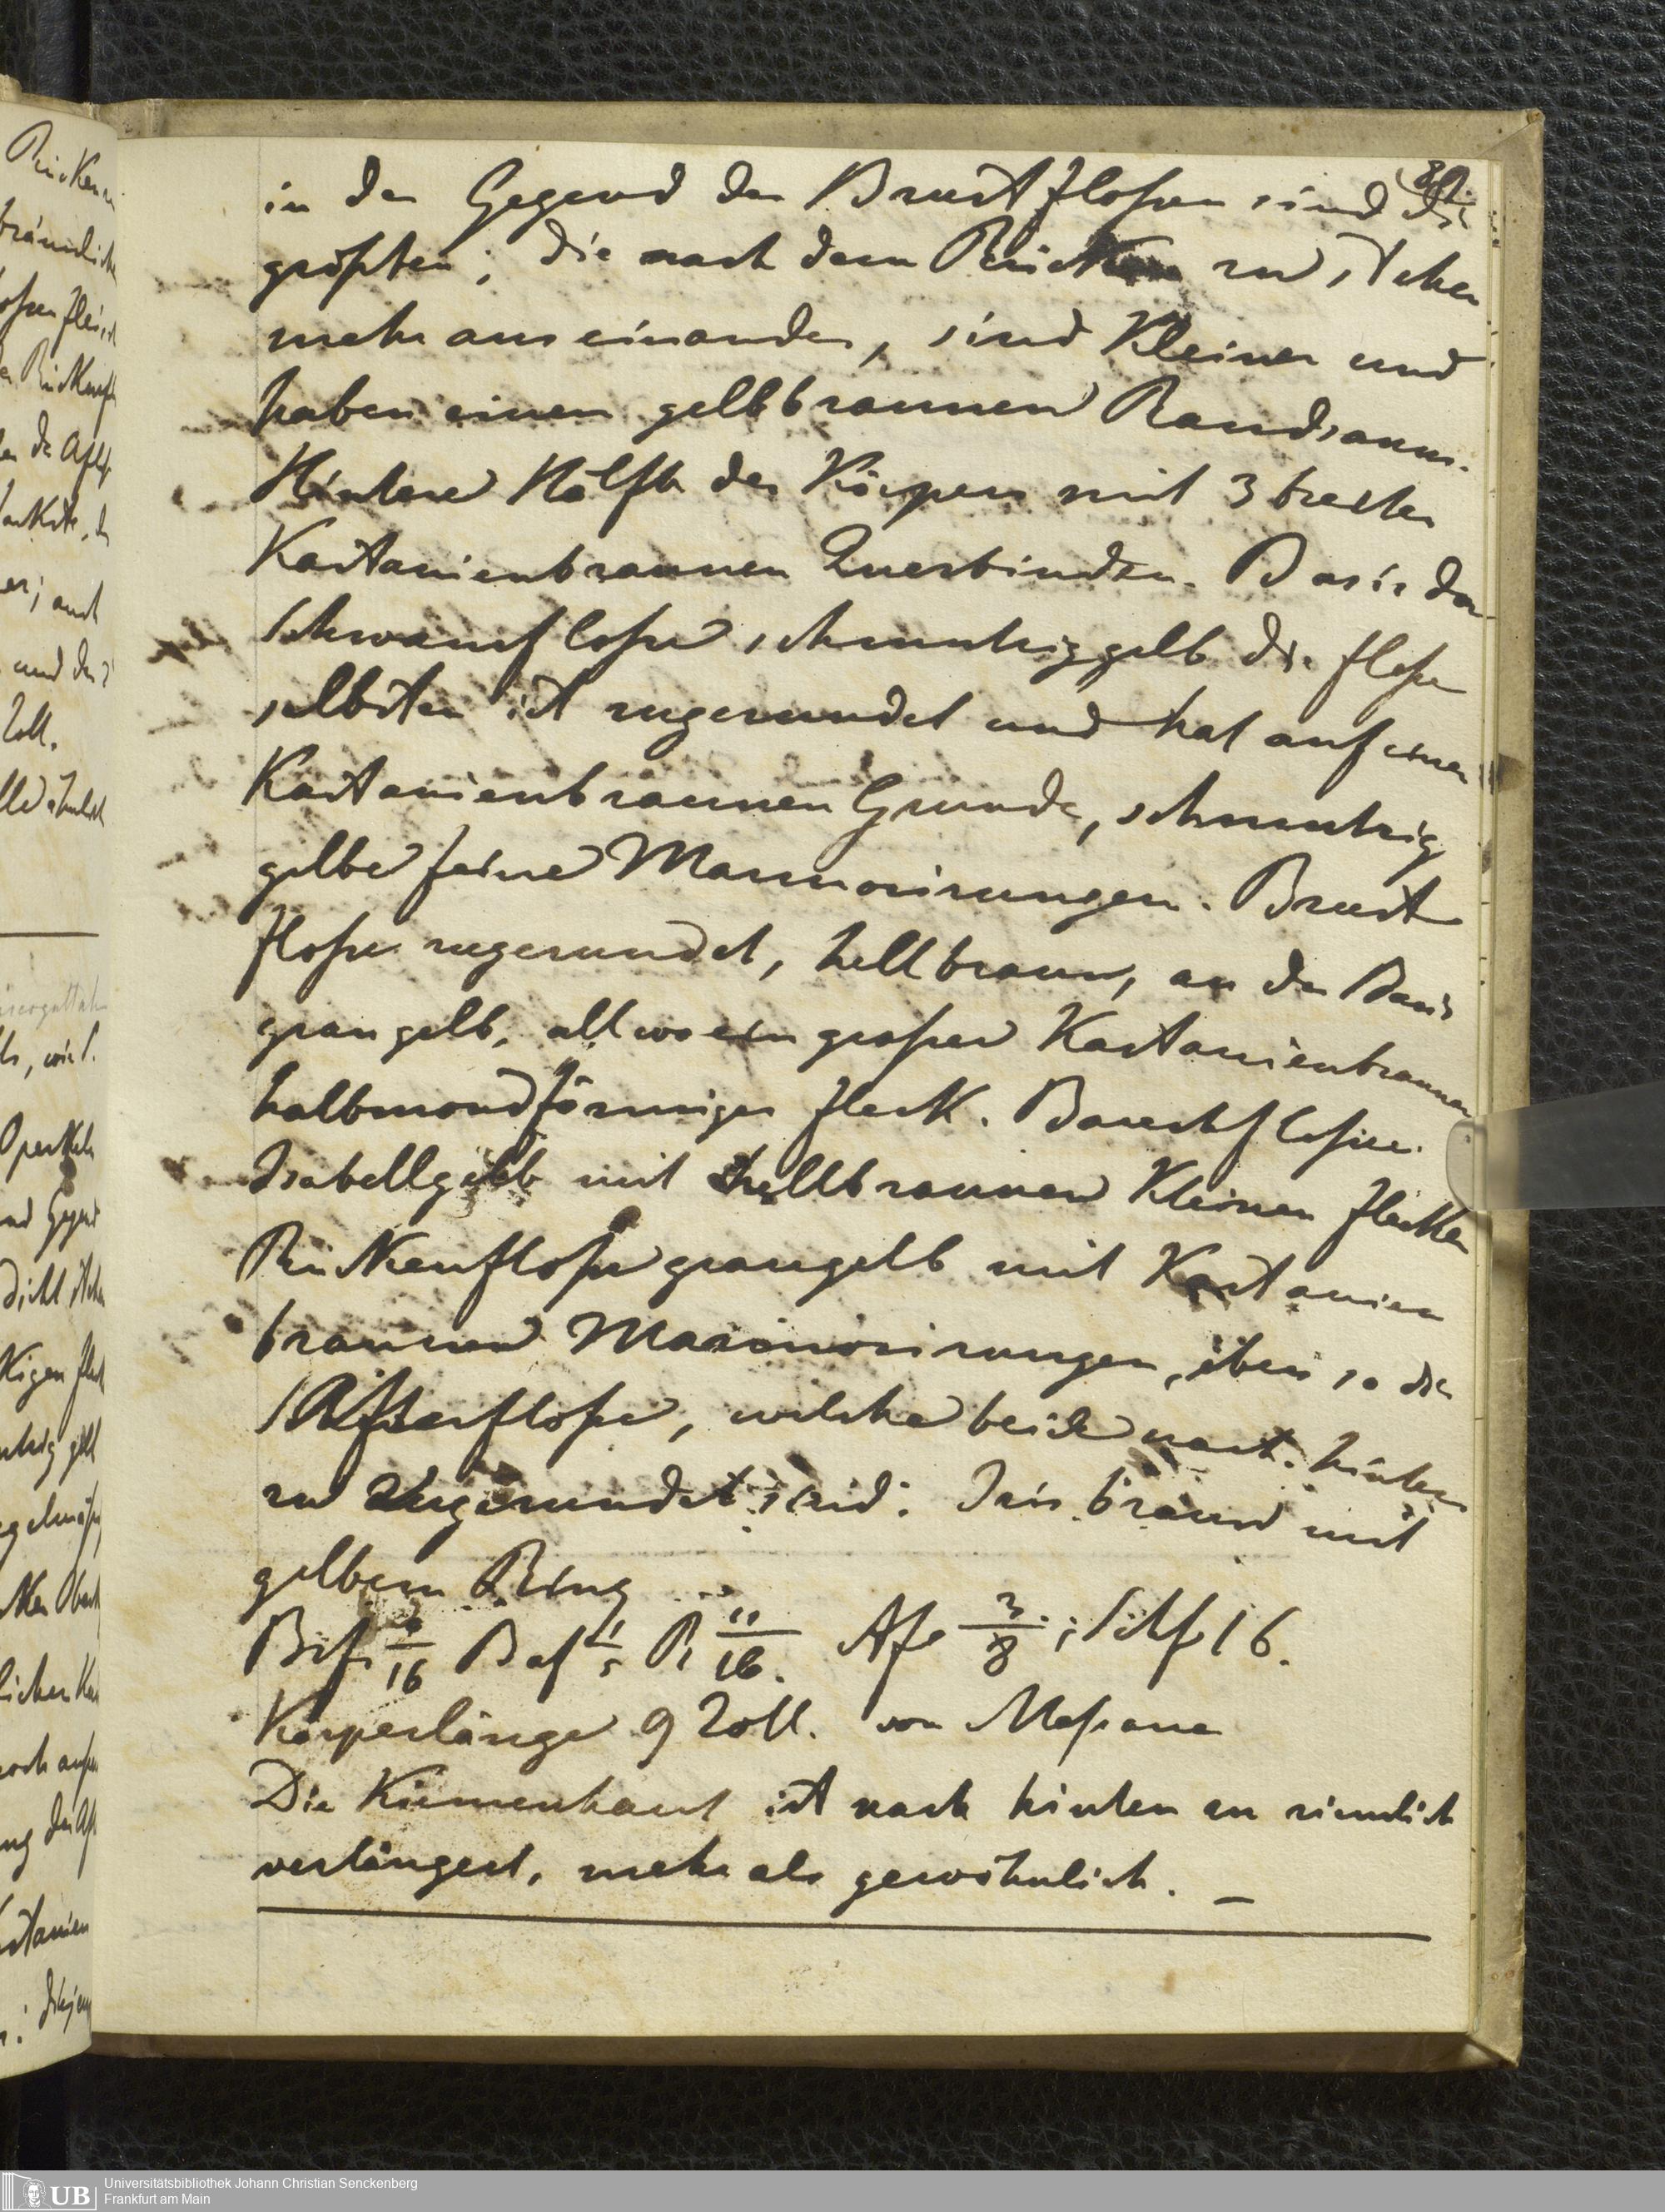 in der Gegend der Brustfloßen sind die
größten; die nach dem Rücken zu stehen
mehr aus einander, sind kleiner und
haben einen gelbbraunen Randsaum.
Hintere Hälfte des Körpers mit 3 breiten
Kastanienbraunen Querbinden. Basis der
Schwanzfloße schmutziggelb die floße
selbsten ist zugerundet und hat auf einen
Kastanienbraunen Grunde, schmutzig
gelbe feine Marmorirungen. Brust
floße zugerundet, hellbraun, an der Basis
graugelb, allwo ein großer Kastanienbrauner
halbmondförmiger fleck. Bauchfloßen
Isabellgelb mit hellbraunen kleinen flecken
Rückenfloße graugelb mit Kastanien
braunen Marmorirungen, eben so die
Afterfloße, welche beide nach hinten
zu zugerundet sind. Iris braun mit
gelbem Ring
Bif 16 Baf 1/5 R 11/16. Afe 3/8; Schf 16.
Körperlänge 9 Zoll. von Maßaua
Die Kiemenhaut ist nach hinten zu ziemlich
verlängert, mehr als gewöhnlich. —
UB Universitätsbibliothek Johann Christian Senckenberg
Frankfurt am Main